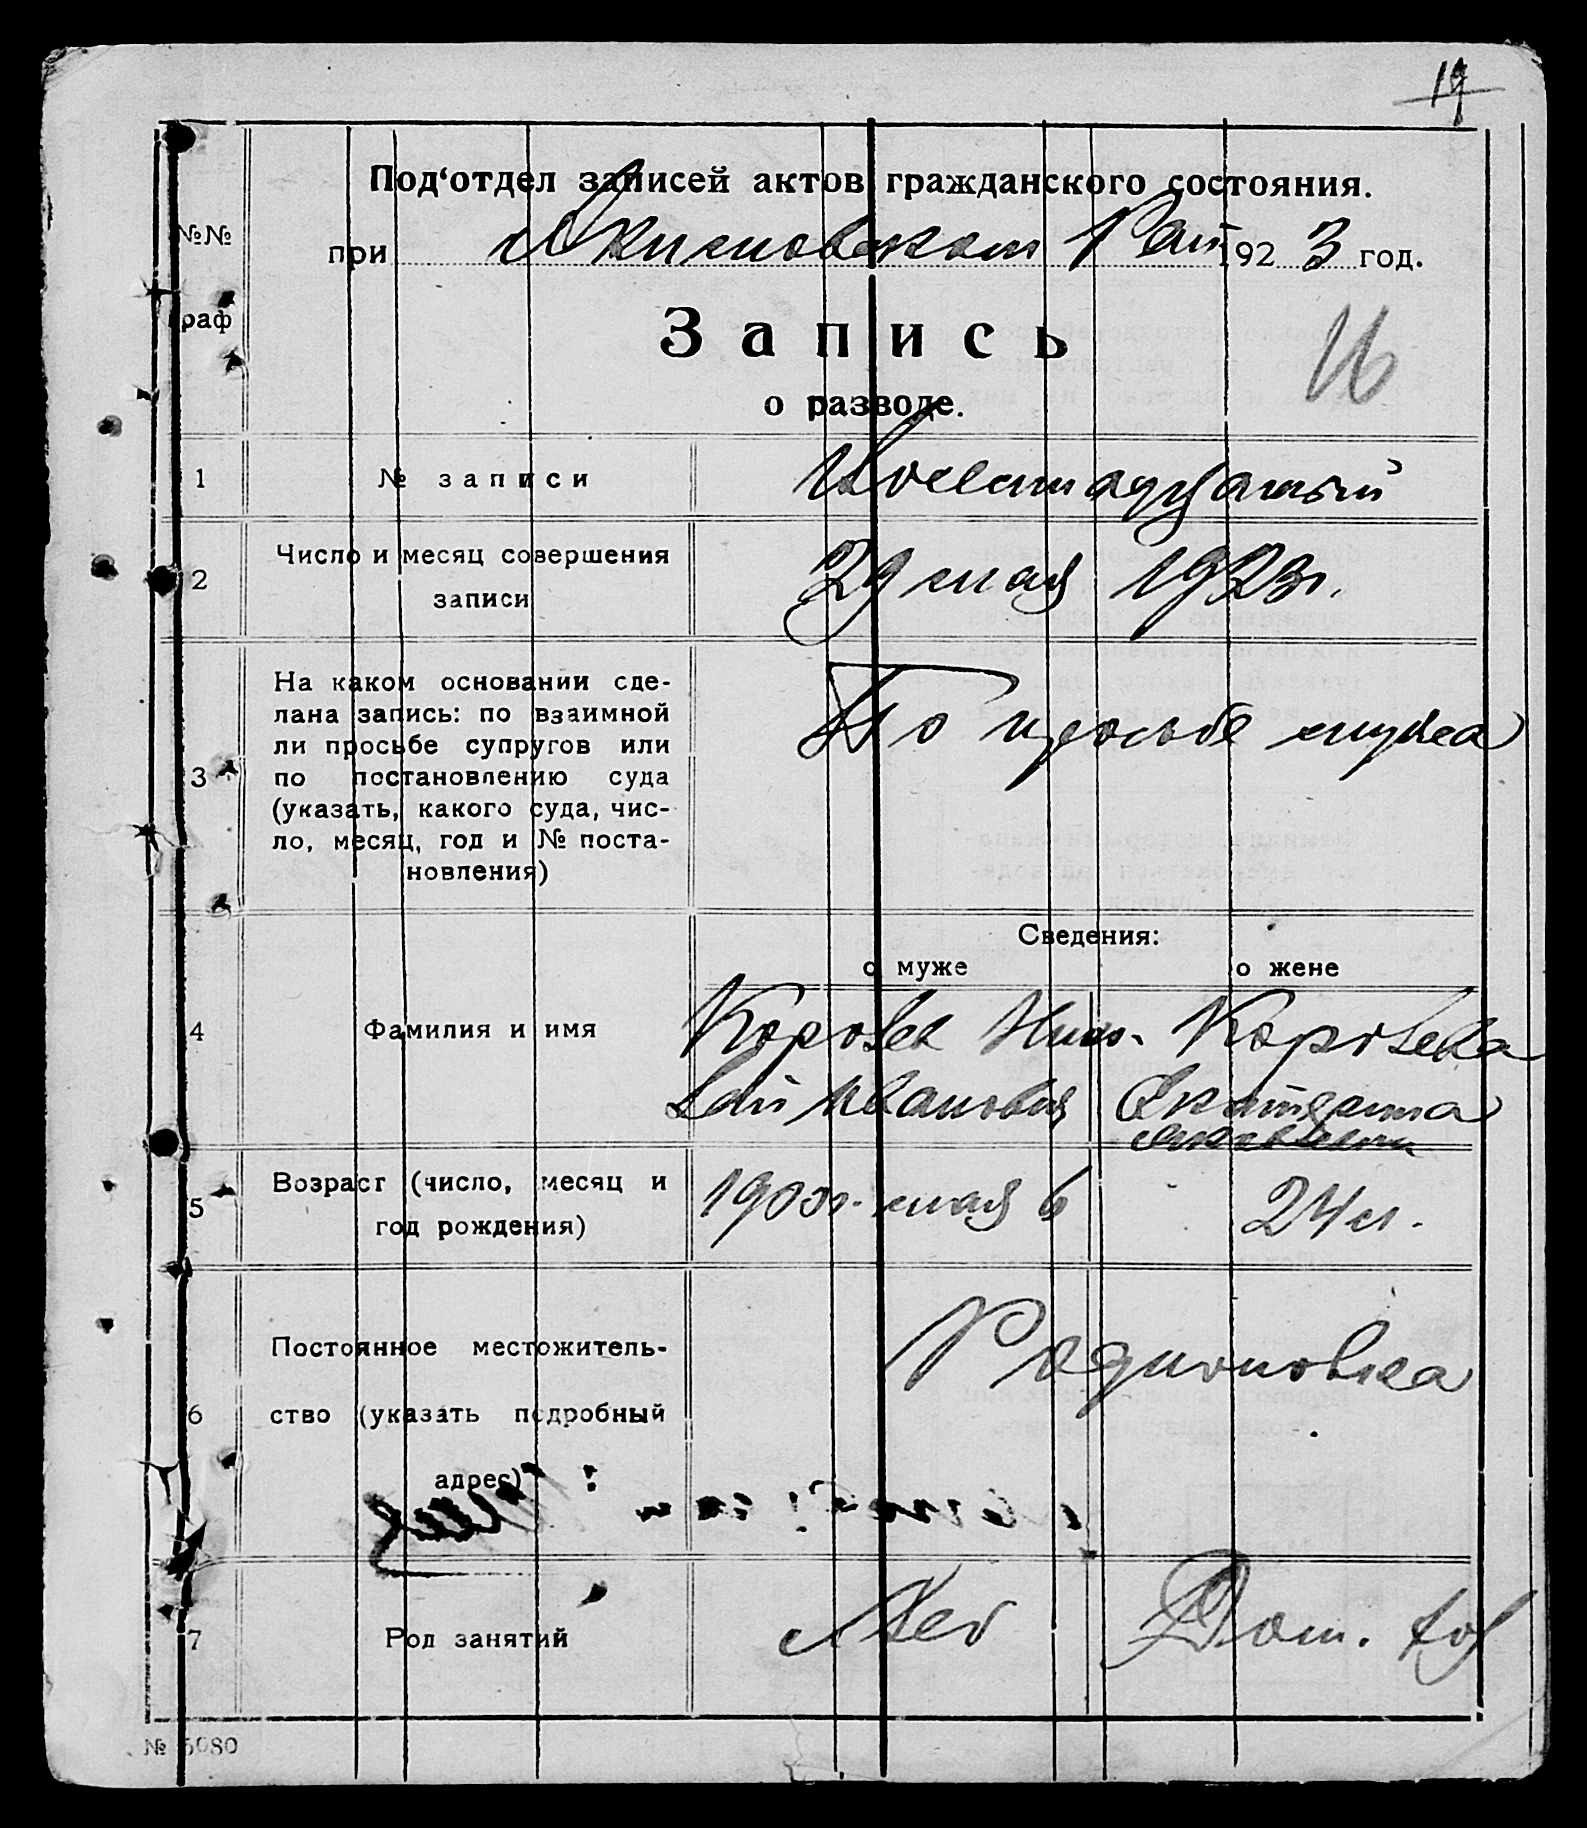 19
Под‘отдел записей актов гражданского состояния.
№№ граф
при Акимовском Рай 1923 год.
Запись
о разводе.
16
1 № записи
2 Число и месяц совершения записи 29 мая 1923г.
3 На каком основании сде-
лана запись: по взаимной
ли просьбе супругов или
по постановлению суда
(указать, какого суда, чис-
ло, месяц, год и № поста-
новления)
По просьбе мужа
Сведения:
о муже о жене
4 Фамилия и имя
Королев Нико- Королева
лай Иванович Екатерина
5 Возраст (число, месяц и
год рождения)
мая 6 24 л.
6 Постоянное местожитель-
ство (указать подробный
адрес)
Родионовка
7 Род занятий Дом. хоз
№ 5080